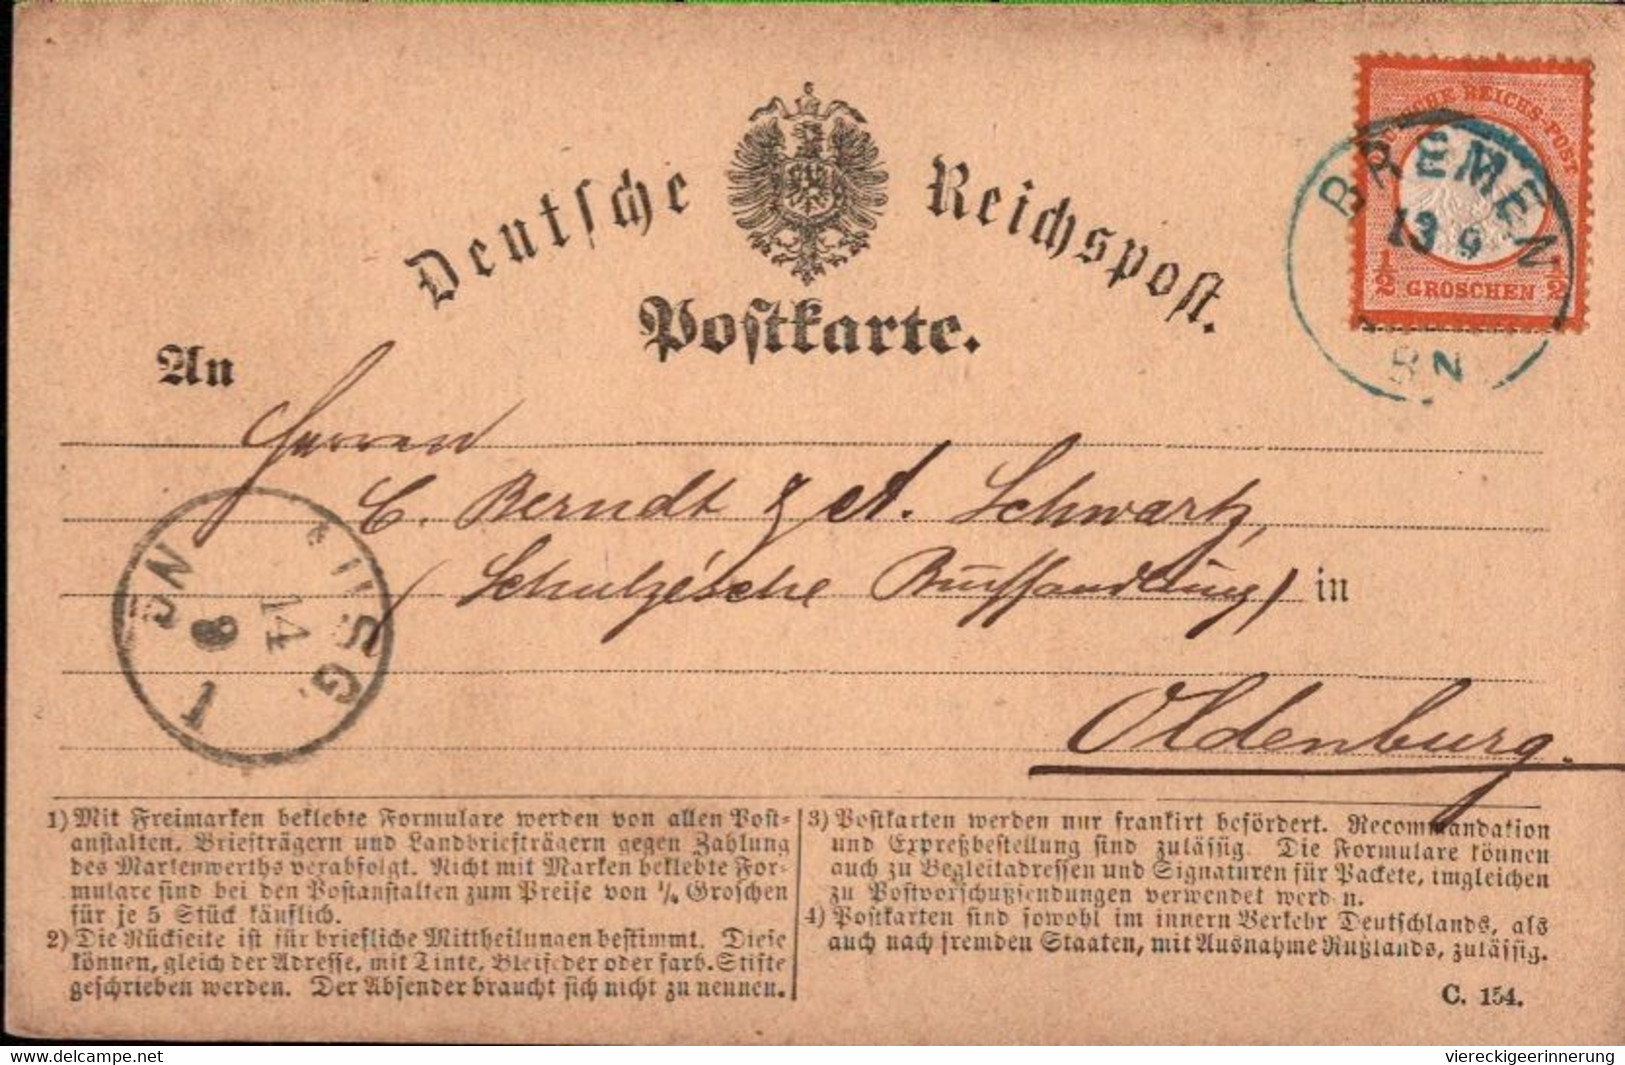 Deutsche Reichspost.
Postkarte.
DEUTSCHE REICHS-POST
½ GROSCHEN ½
BREMEN
13 9
BN
An
Herren
C. Berndt & A. Schwartz,
(Schulze'sche Buchhandlung) in
Oldenburg.
AUSG.
14
9
1
1) Mit Freimarken beklebte Formulare werden von allen Post-
anstalten, Briefträgern und Landbriefträgern gegen Zahlung
des Markenwerths verabfolgt. Nicht mit Marken beklebte For-
mulare sind bei den Postanstalten zum Preise von ¼ Groschen
für je 5 Stück käuflich.
2) Die Rückseite ist für briefliche Mittheilungen bestimmt. Diese
können, gleich der Adresse, mit Tinte, Bleifeder oder farb. Stifte
geschrieben werden. Der Absender braucht sich nicht zu nennen.
3) Postkarten werden nur frankirt befördert. Recommandation
und Expreßbestellung sind zulässig. Die Formulare können
auch zu Begleitadressen und Signaturen für Packete, imgleichen
zu Postvorschußsendungen verwendet werden.
4) Postkarten sind sowohl im innern Verkehr Deutschlands, als
auch nach fremden Staaten, mit Ausnahme Rußlands, zulässig.
C. 154.
delcampe.net
viereckigeerinnerung